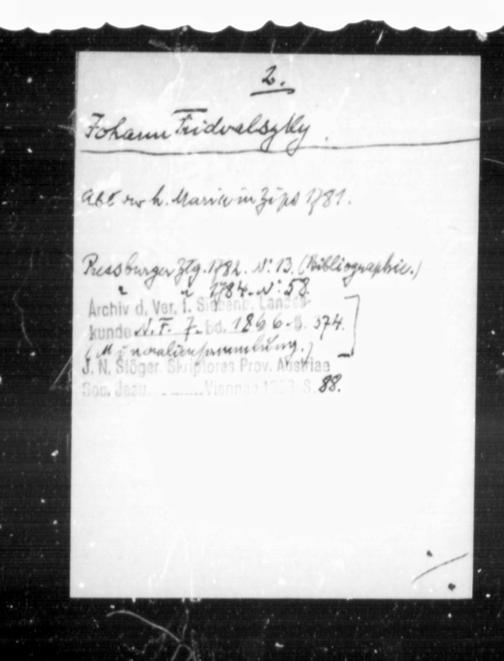 2.
Johann Fridvalszky.
Abt v. h. Maria in Zips 1781.
Pressburger Ztg. 1782. N: 13. (Bibliographie.)
" " 1784. N: 58.
Archiv d. Ver. f. Siebenb. Landes-
kunde N. F. 7. Bd. 1866. S. 374.
(Mineraliensammlung.)
J. N. Stöger. Skriptores Prov. Austriae
Soc. Jesu. Viennae S. 88.